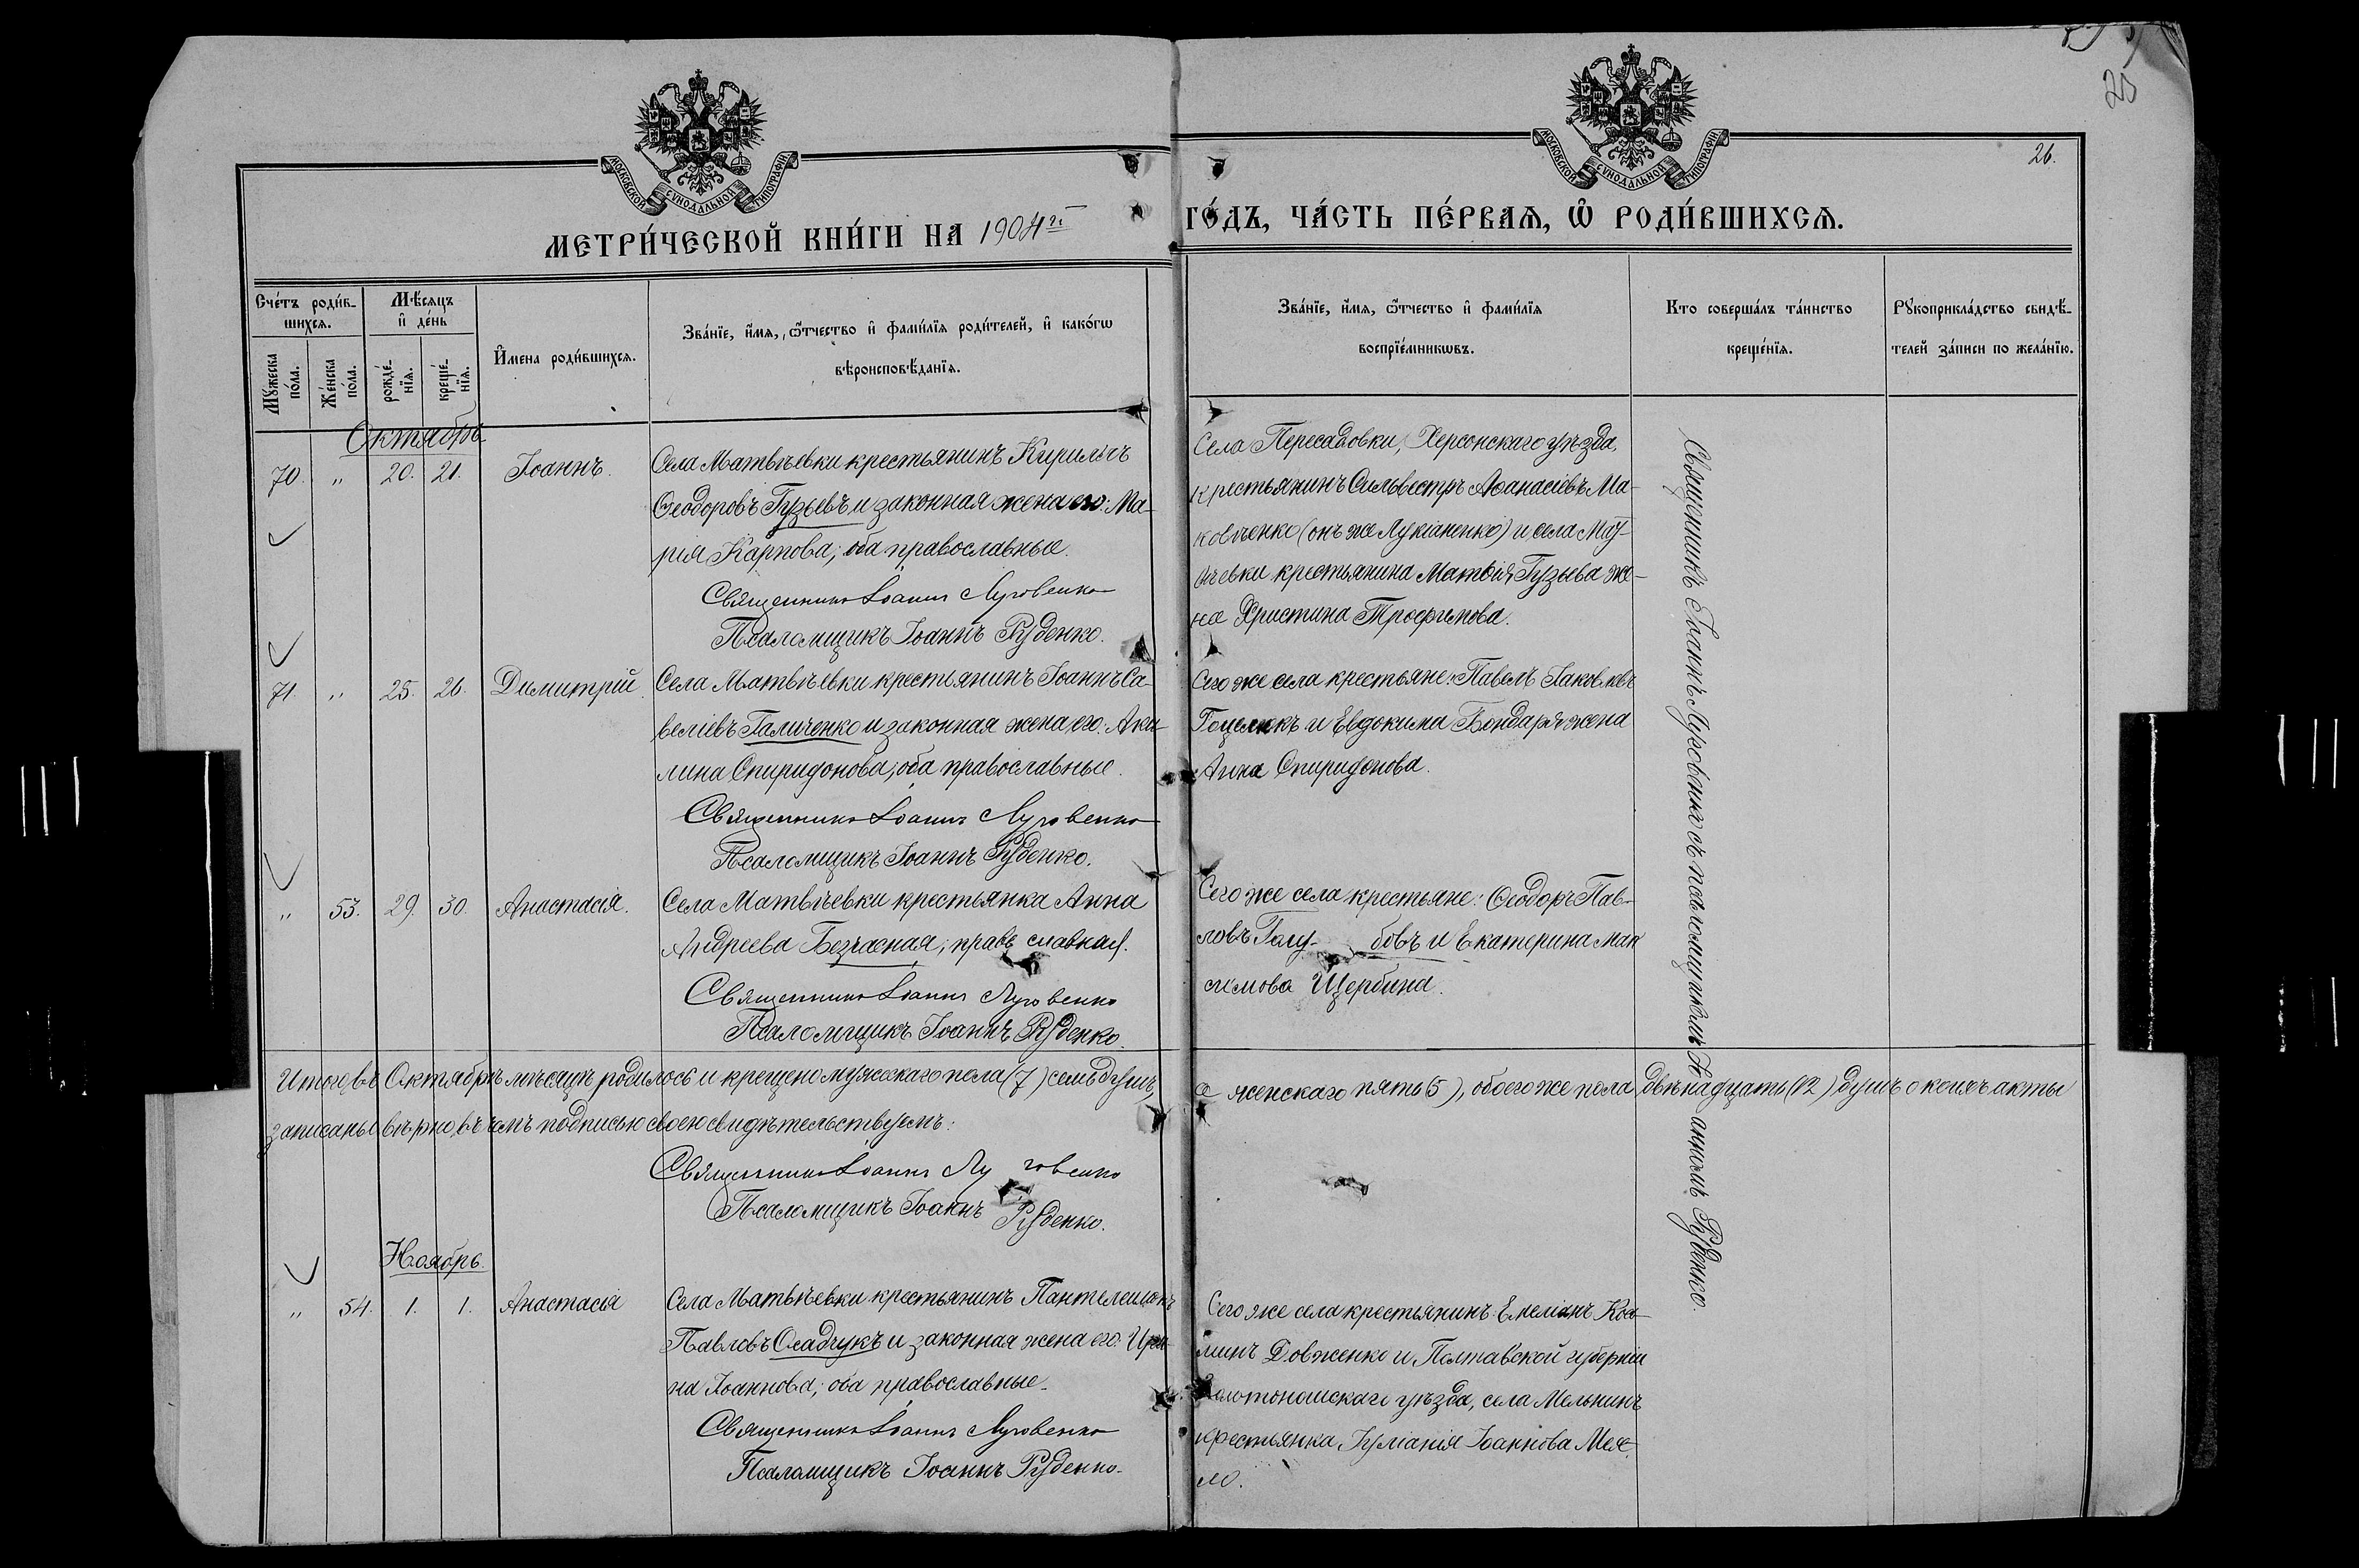 25
26.
МОСКОВСКОЙ СѴНОДАЛЬНОЙ ТИПОГРАФІИ
МОСКОВСКОЙ СѴНОДАЛЬНОЙ ТИПОГРАФІИ
МЕТРИ́ЧЕСКОЙ КНИ́ГИ НА 1904й ГО́ДЪ, ЧА́СТЬ ПЕ́РВАЯ, Ѡ РОДИ́ВШИХСЯ.
Сче́тъ роди́в-
шихся.
Мꙋ́жеска
по́ла.
Же́нска
по́ла.
Мѣ́сяцъ
и҆ де́нь
рожде́-
нїя.
креще́-
нїя.
И҆́мена роди́вшихся.
Зва́нїе, и҆́мя, ѻ҆́тчество и҆ фами́лїя роди́телей, и҆ како́гѡ
вѣроисповѣ́данїя.
Зва́нїе, и҆́мя, ѻ҆́тчество и҆ фами́лїя
воспрїе́мникѡвъ.
Кто соверша́лъ та́инство
креще́нїя.
Рꙋкоприкла́дство свидѣ́-
телей за́писи по жела́нїю.
Октябрь
70. " 20. 21. Іоаннъ.
Села Матвѣевки крестьянинъ Кириллъ
Ѳеодоровъ Гузьевъ и законная жена его: Ма-
рія Карпова; оба православные.
Священникъ Іоаннъ Луговенко
Псаломщикъ Іоаннъ Руденко.
Села Пересадовки, Херсонскаго уѣзда,
крестьянинъ Сильвестръ Аѳанасіевъ Ма-
ковѣенко (онъ же Лукіаненко) и села Мат-
вѣевки крестьянина Матвія Гузьева же-
на Христина Трофимова.
71. " 25. 26. Димитрій
Села Матвѣевки крестьянинъ Іоаннъ Са-
веліевъ Галиченко и законная жена его: Аки-
лина Спиридонова; оба православные.
Священникъ Іоаннъ Луговенко
Псаломщикъ Іоаннъ Руденко.
Сего же села крестьяне: Павелъ Іаковлевъ
Гоцелюкъ и Евдокима Бондаря жена
Анна Спиридонова.
" 53. 29. 30. Анастасія.
Села Матвѣевки крестьянка Анна
Андреева Безчасная; православная.
Священникъ Іоаннъ Луговенко
Псаломщикъ Іоаннъ Руденко.
Сего же села крестьяне: Ѳеодоръ Пав-
ловъ Голу-бовъ и Екатерина Мак
симова Щербина.
Итого въ Октябрѣ мѣсяцѣ родилось и крещено мужескаго пола (7) семь душъ, а женскаго пять (5), обоего же пола двѣнадцать (12) душъ о коихъ акты
записаны вѣрно, въ чемъ подписью своею свидѣтельствуемъ:
Священникъ Іоаннъ Луговенко
Псаломщикъ Іоаннъ Руденко.
Ноябрь.
" 54. 1. 1. Анастасія
Села Матвѣевки крестьянинъ Пантелеимонъ
Павловъ Осадчукъ и законная жена его: Ири-
на Іоаннова; оба православные.
Священникъ Іоаннъ Луговенко
Псаломщикъ Іоаннъ Руденко.
Сего же села крестьянинъ: Емеліанъ Кось-
минъ Довженко и Полтавской губерніи
Золотоношскаго уѣзда, села Мельникъ
крестьянка Іуліанія Іоаннова Мея-
ло.
Священникъ Іоаннъ Луговенко съ псаломщикомъ Іоанномъ Руденко.